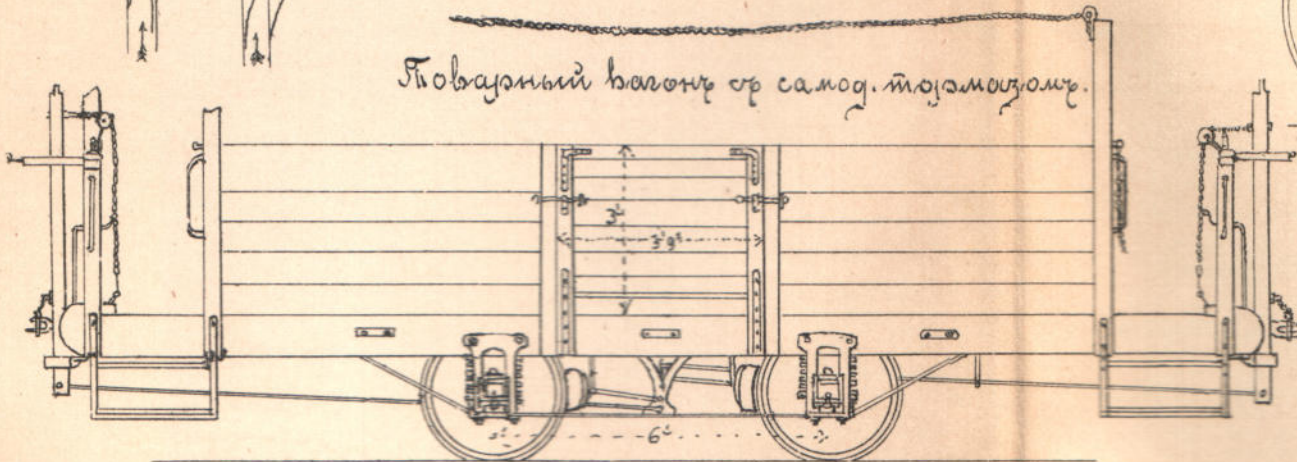 Товарный вагонъ съ самод. тормазомъ.
3'9"
6'